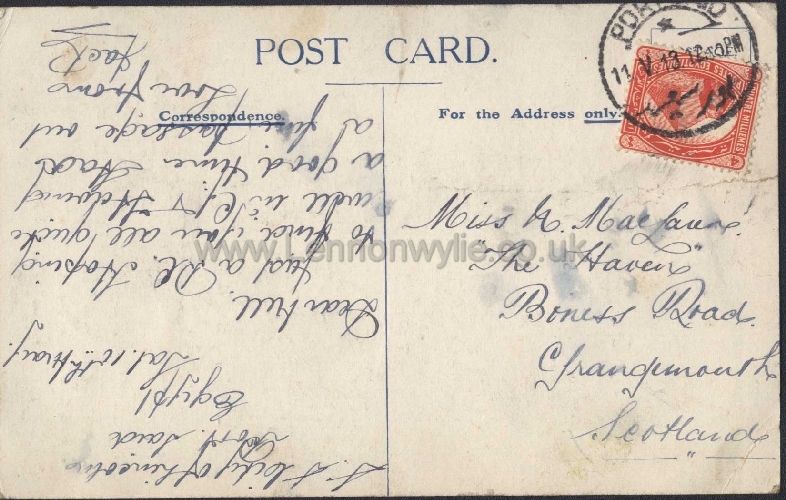 POST CARD.
Correspondence.
For the Address only.
PORT SAID
11 V 13 12 PM
بورسعيد
POSTES EGYPTIENNES
QUATRE MILLIEMES
S. S. City of Lincoln
Port Said
Egypt
Sat. 10th May.
Dear Nell.
Just a P.C. Hoping
to find you all quite
well & Having
a good time. Had
a fine passage out
Love from
Jack
Miss N. MacLaren
"The Haven"
Boness Road.
Grangemouth
Scotland
www.Lennonwylie.co.uk